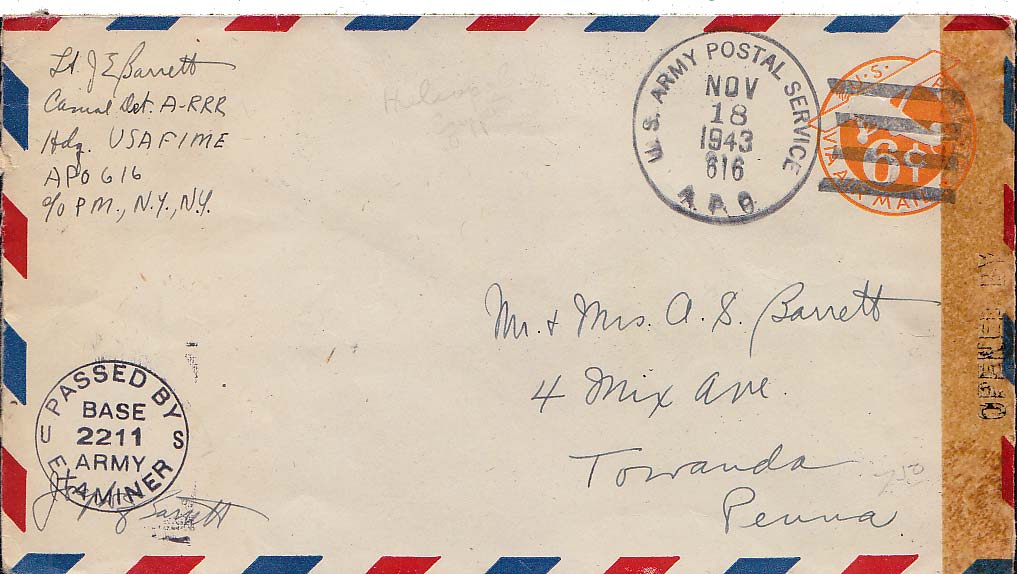 Lt. J E Barrett
Casual Det. A-RRR
Hdq. USAFIME
APO 616
c/o P.M., N.Y., N.Y.
U.S. ARMY POSTAL SERVICE
NOV
18
1943
616
A.P.O.
U.S. POSTAGE
6¢
VIA AIR MAIL
Mr. + Mrs. A. S. Barrett
4 Mix Ave.
Towanda
Penna
PASSED BY
BASE
U 2211 S
ARMY
EXAMINER
Barrett
OPENED BY